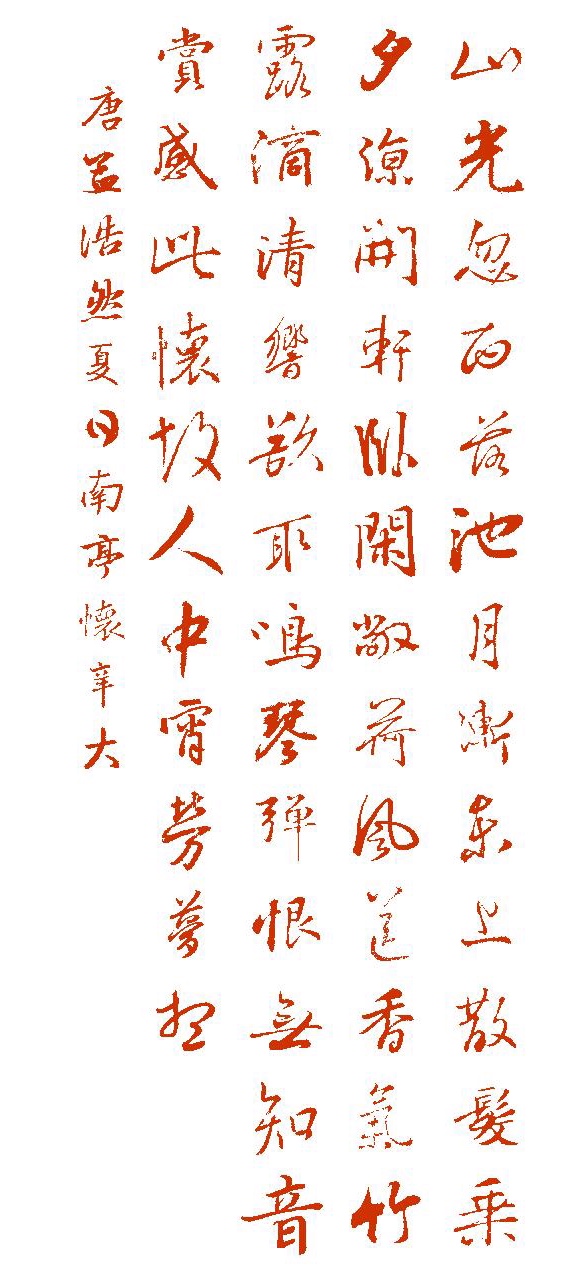 山光忽西落池月漸東上散髮乘
夕涼開軒臥閑敞荷風送香氣竹
露滴清響欲取鳴琴彈恨無知音
賞感此懷故人中宵勞夢想
唐孟浩然夏日南亭懷辛大